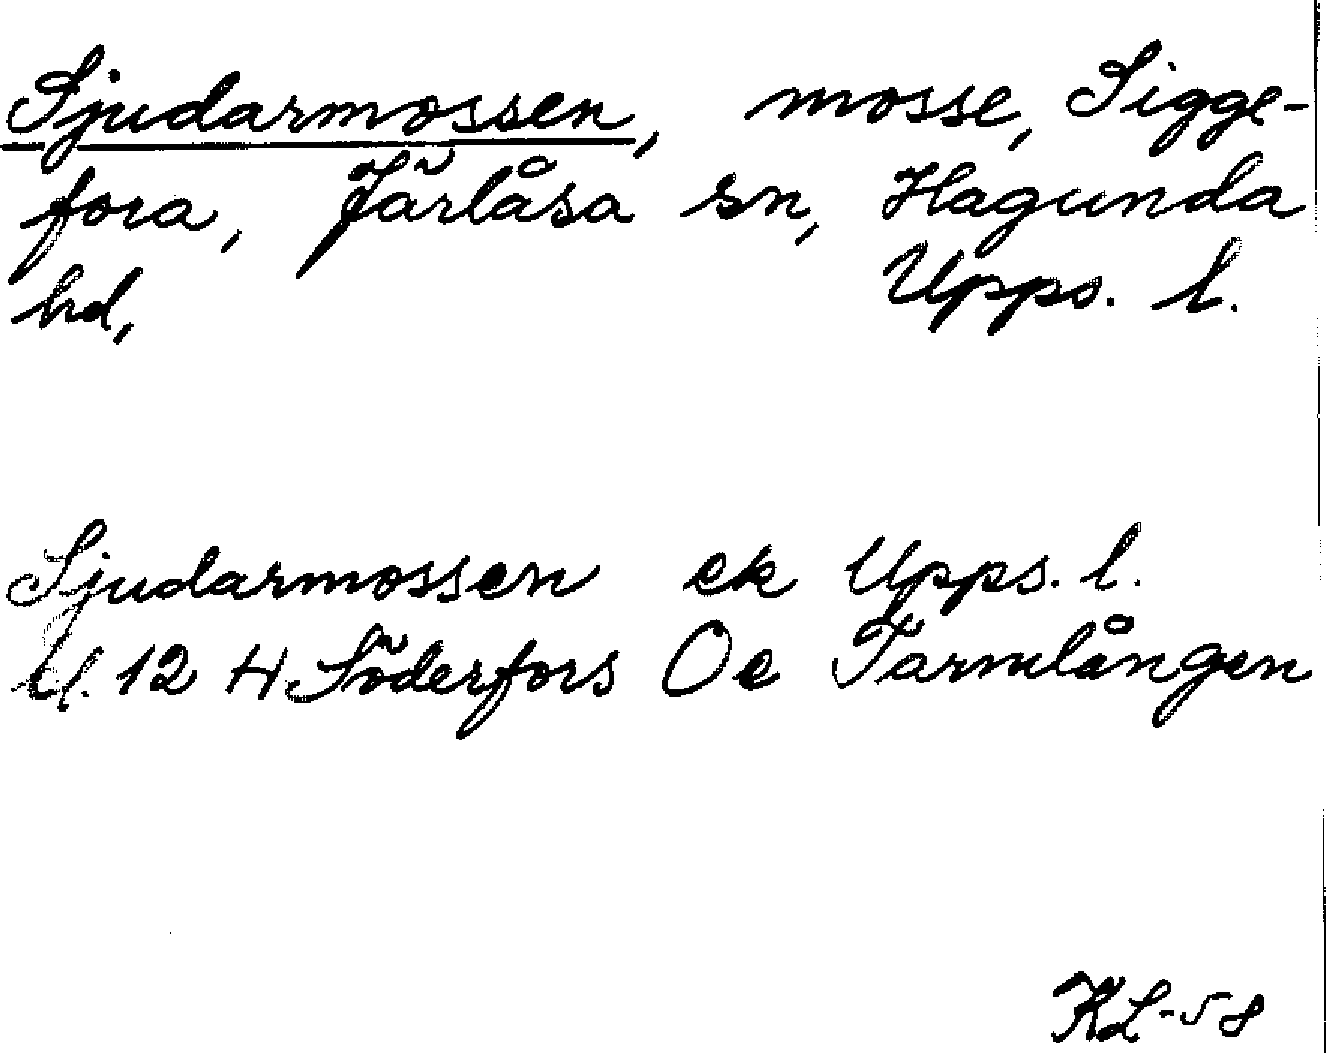 Sjudarmossen, mosse, Sigge-
fora, Järlåsa sn, Hagunda
hd, Upps. l.
Sjudarmossen ek Upps. l.
U. 12 H Söderfors Oe Tarmlången
KL-58